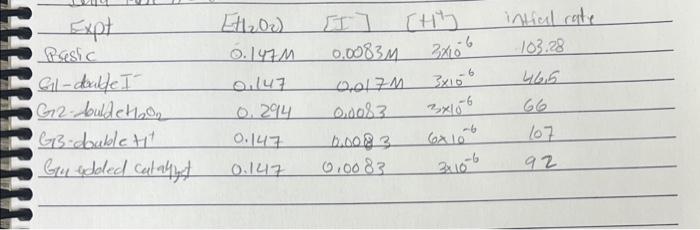 Expt [H2O2] [I-] [H+] initial rate
Basic 0.147M 0.0083M 3x10^-6 103.28
G1-double I- 0.147 0.017M 3x10^-6 46.5
G2-double H2O2 0.294 0.0083 3x10^-6 66
G3-double H+ 0.147 0.0083 6x10^-6 107
G4 added catalyst 0.147 0.0083 3x10^-6 92